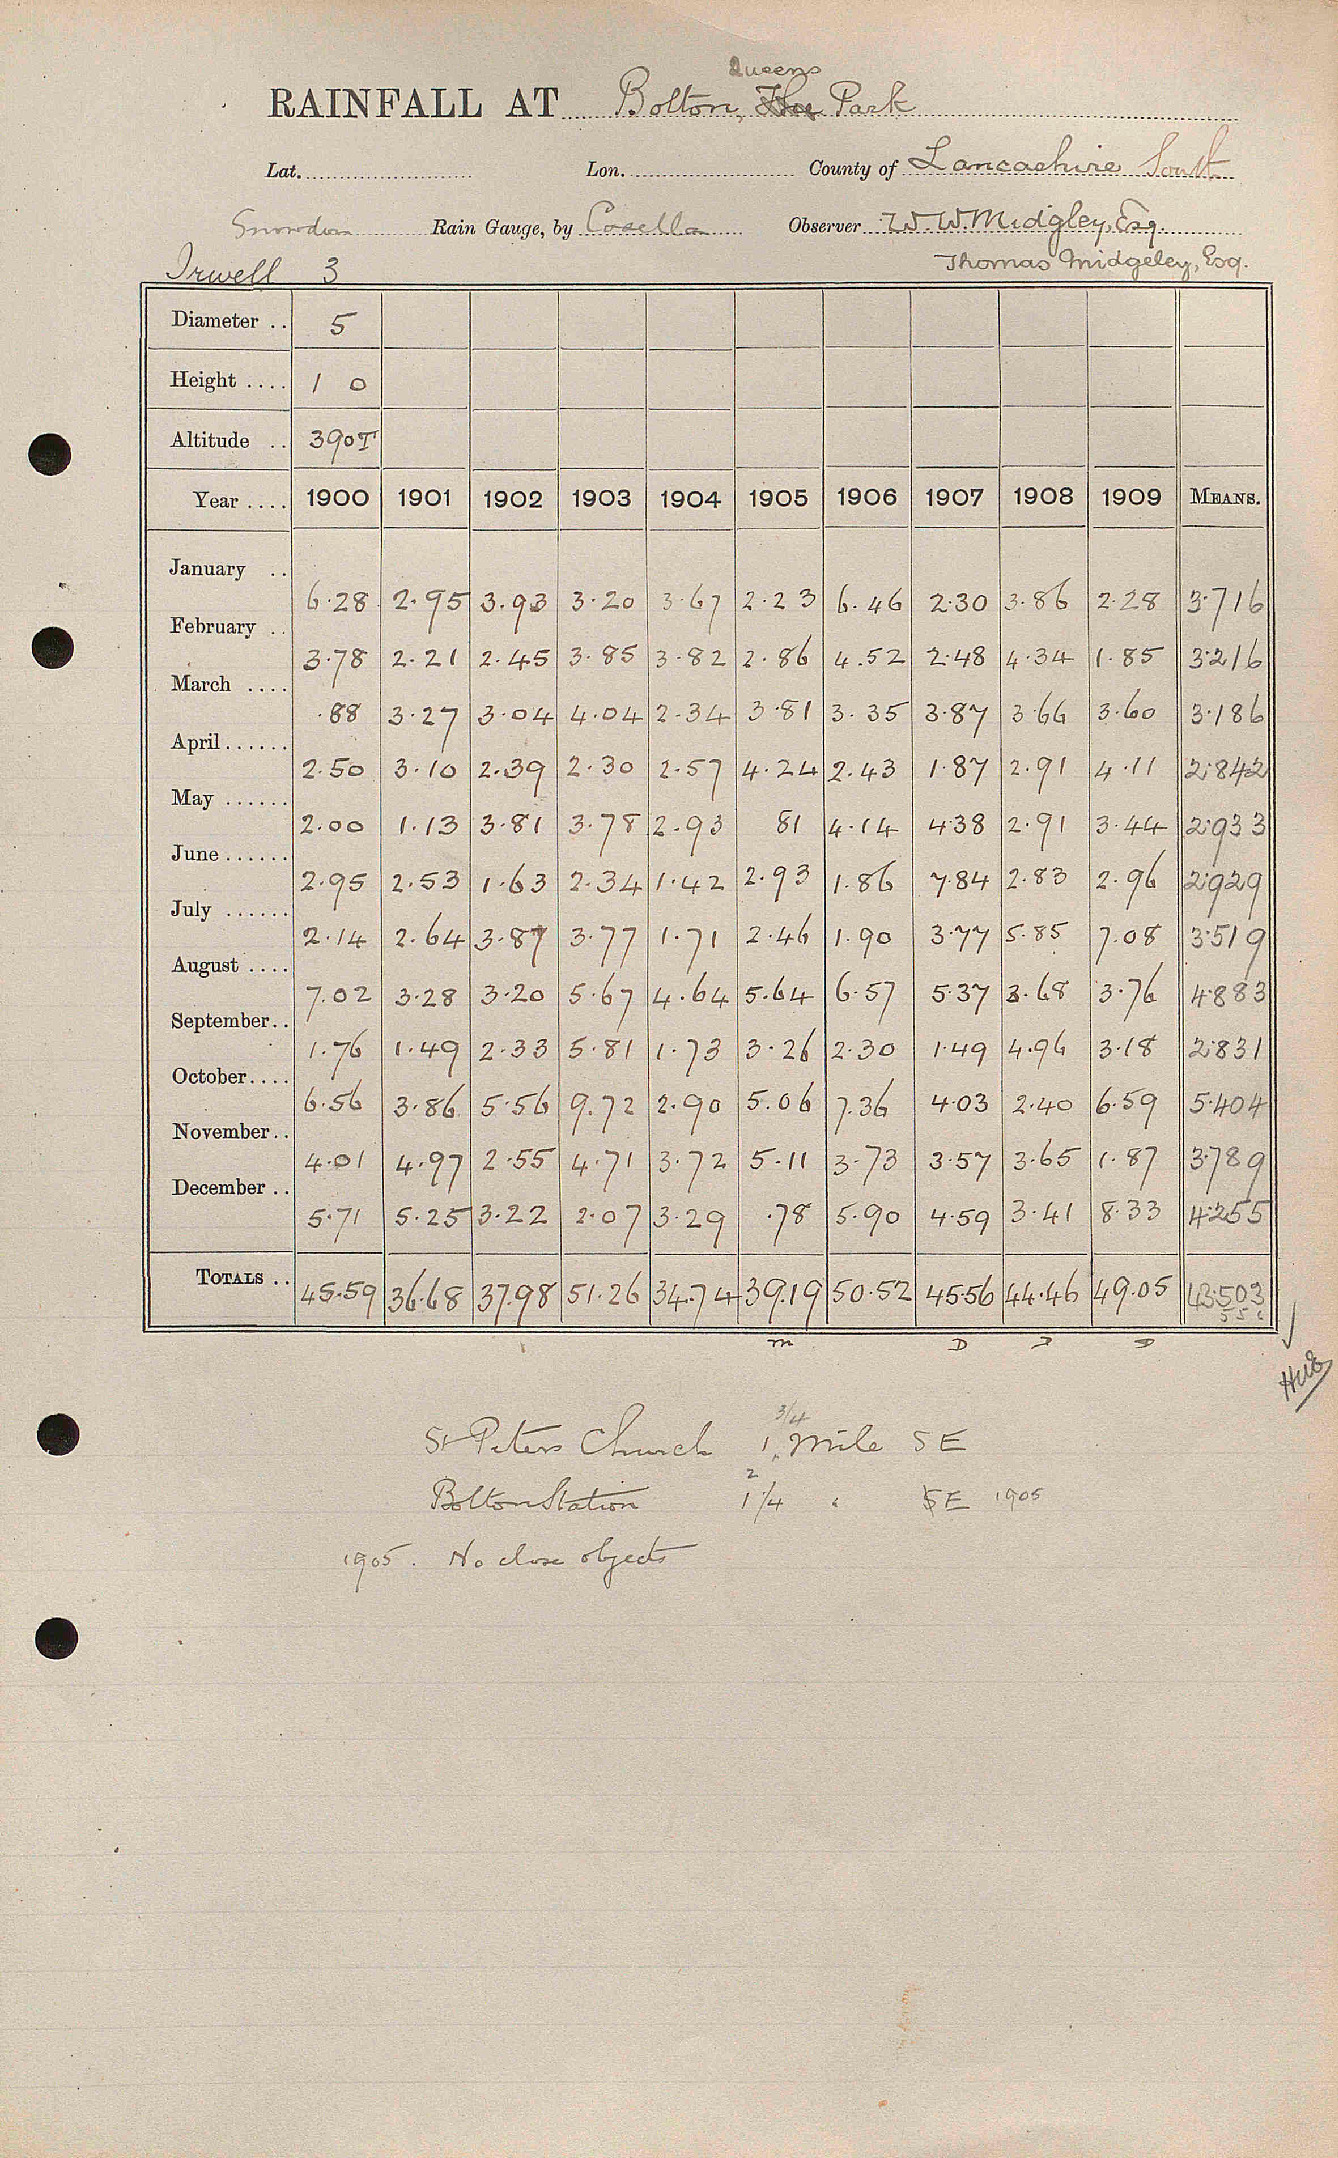 Queens
RAINFALL AT Bolton, The Park
Lat. Lon. County of Lancashire South
Snowdon Rain Gauge, by Casella Observer W. W. Midgley, Esq.
Irwell 3 Thomas Midgeley, Esq.
Diameter .. 5
Height .... 1 0
Altitude .. 390T
Year .... 1900 1901 1902 1903 1904 1905 1906 1907 1908 1909 MEANS.
January .. 6.28 2.95 3.93 3.20 3.67 2.23 6.46 2.30 3.86 2.28 3.716
February .. 3.78 2.21 2.45 3.85 3.82 2.86 4.52 2.48 4.34 1.85 3.216
March .... .88 3.27 3.04 4.04 2.34 3.81 3.35 3.87 3.66 3.60 3.186
April ...... 2.50 3.10 2.39 2.30 2.57 4.24 2.43 1.87 2.91 4.11 2.842
May ...... 2.00 1.13 3.81 3.78 2.93 81 4.14 4.38 2.91 3.44 2.933
June ...... 2.95 2.53 1.63 2.34 1.42 2.93 1.86 7.84 2.83 2.96 2.929
July ...... 2.14 2.64 3.87 3.77 1.71 2.46 1.90 3.77 5.85 7.08 3.519
August .... 7.02 3.28 3.20 5.67 4.64 5.64 6.57 5.37 3.68 3.76 4.883
September .. 1.76 1.49 2.33 5.81 1.73 3.26 2.30 1.49 4.96 3.18 2.831
October .... 6.56 3.86 5.56 9.72 2.90 5.06 7.36 4.03 2.40 6.59 5.404
November .. 4.01 4.97 2.55 4.71 3.72 5.11 3.73 3.57 3.65 1.87 3.789
December .. 5.71 5.25 3.22 2.07 3.29 .78 5.90 4.59 3.41 8.33 4.255
TOTALS .. 45.59 36.68 37.98 51.26 34.74 39.19 50.52 45.56 44.46 49.05 43.503
m D D D
3/4
St Peters Church 1 Mile SE
2
Bolton Station 1 1/4 " SE 1905
1905. No close objects